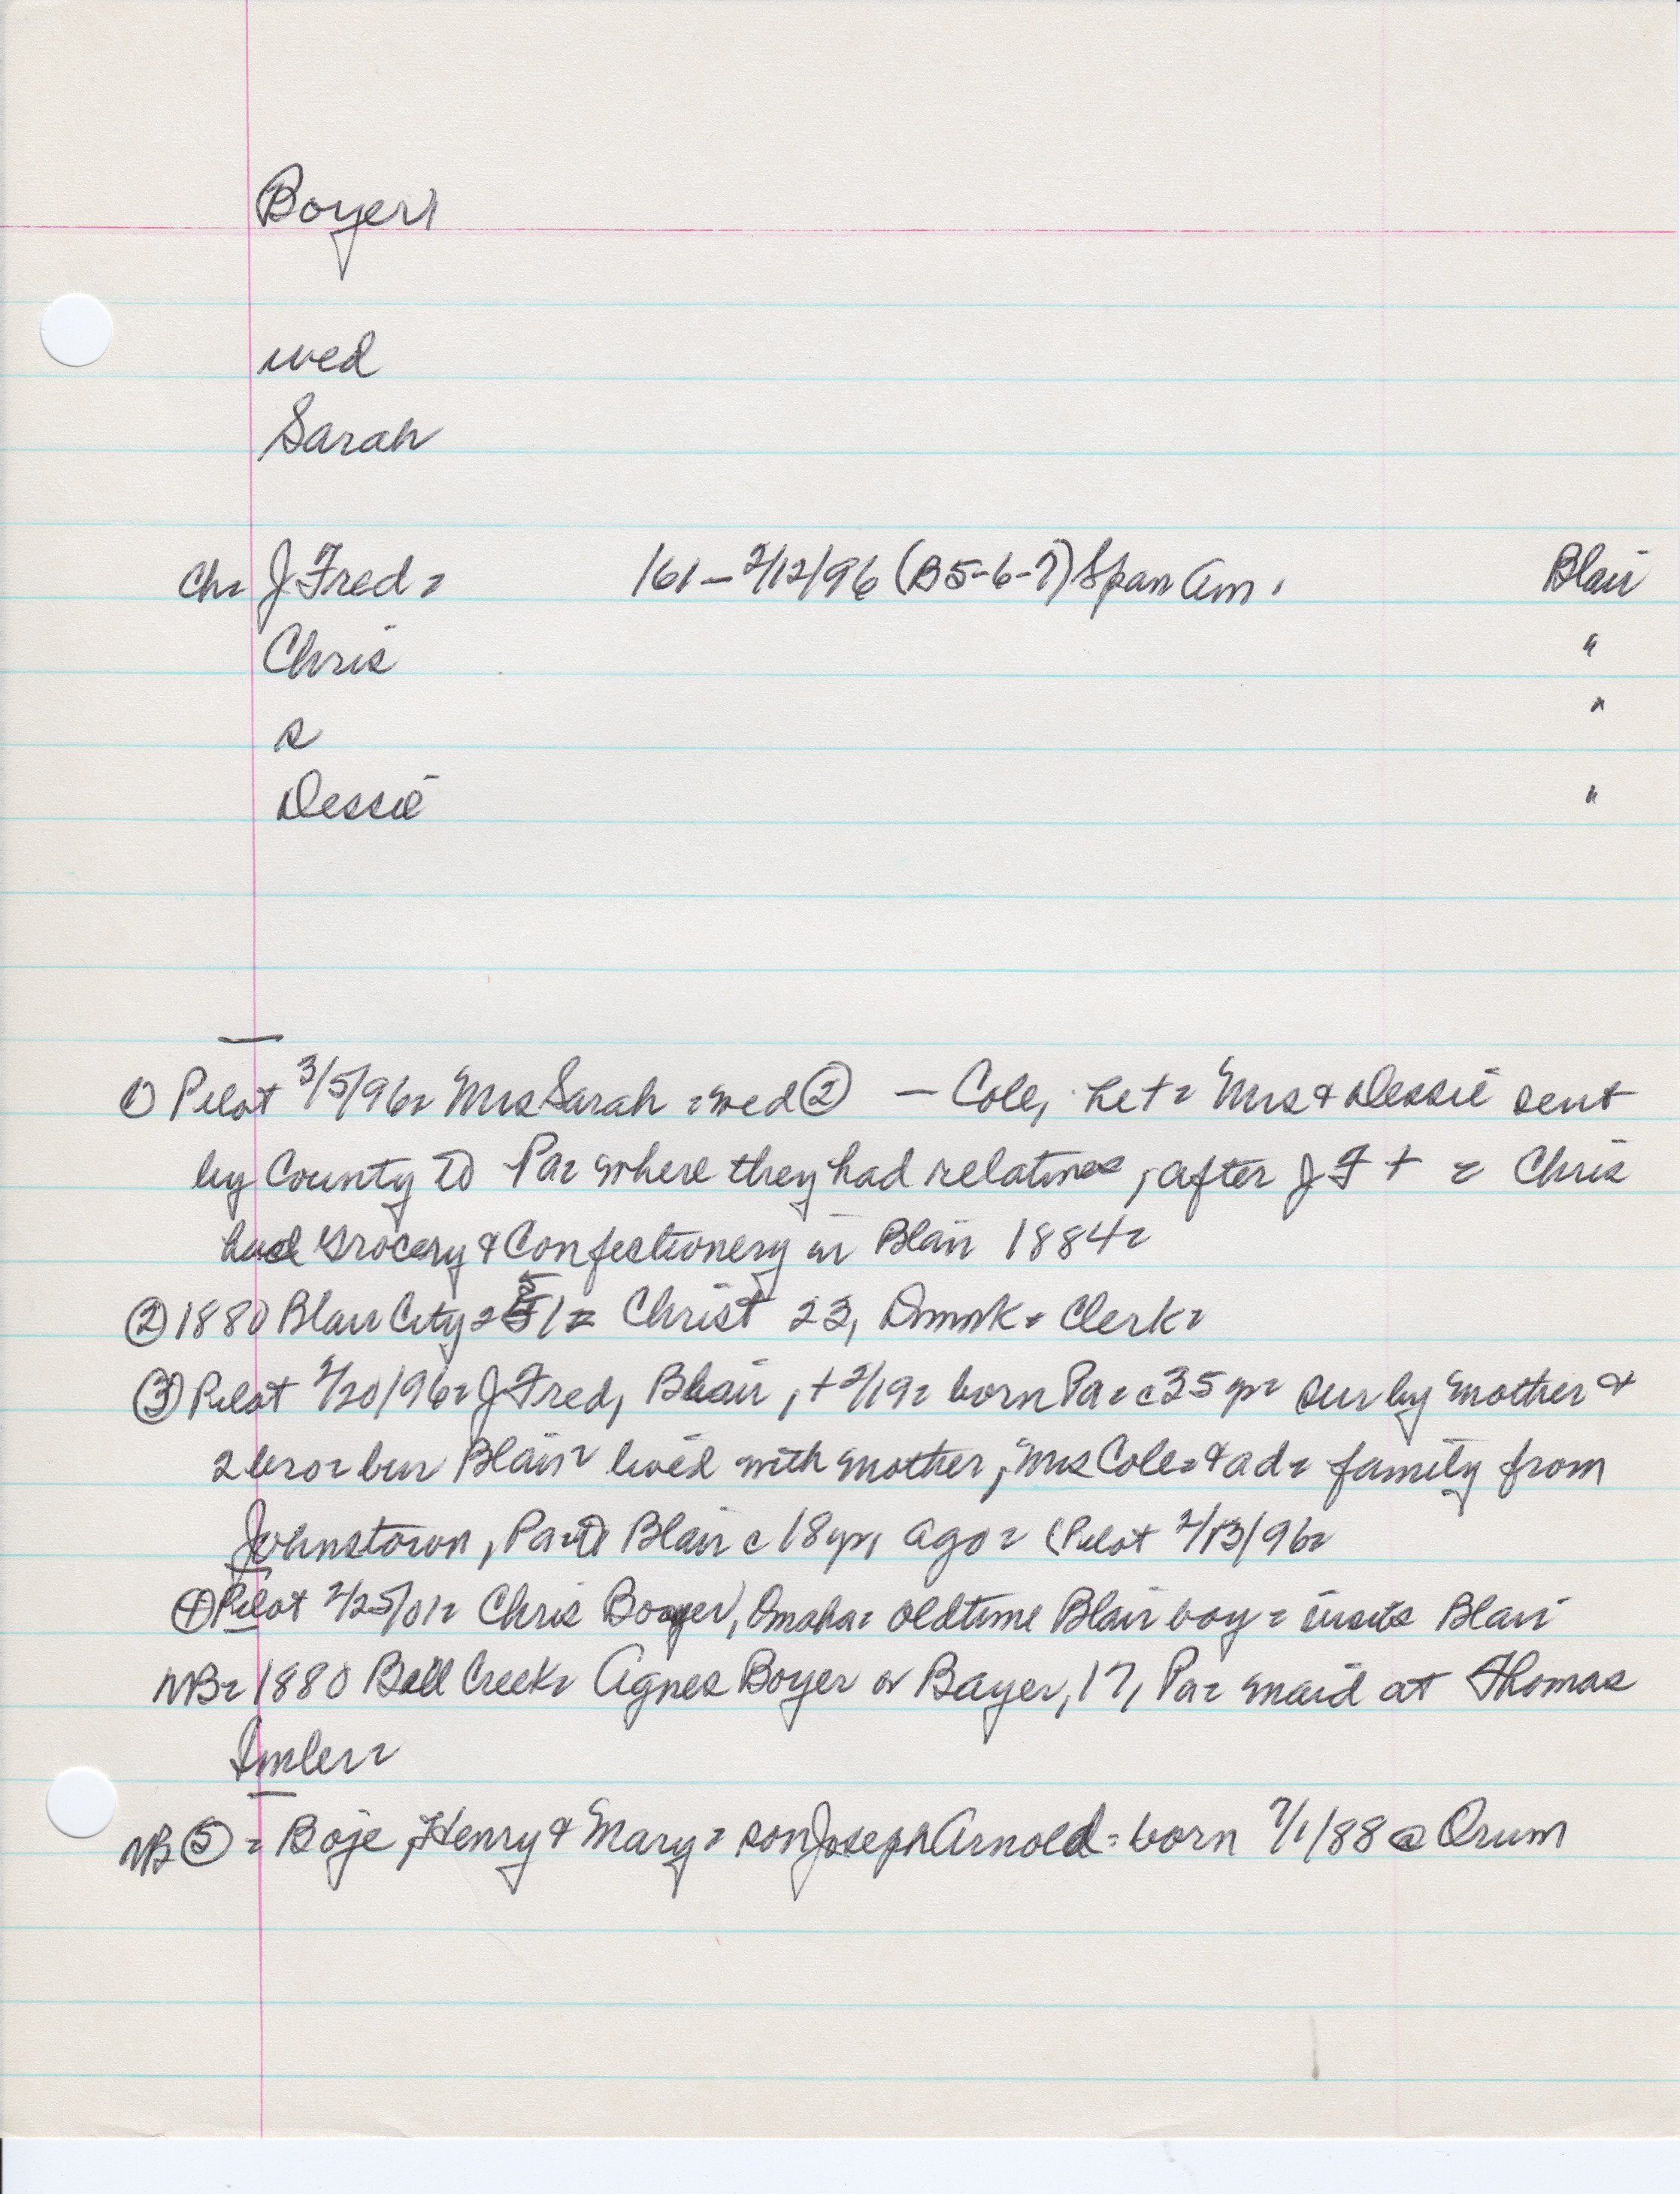 Boyer
wed
Sarah
Ch= J Fred = 161 — 2/12/96 (B5-6-7) Span Am. Blair
Chris "
s "
Dessie "
① Pilot 3/5/96= Mrs Sarah = wed ② — Cole, = Mrs & Dessie sent
by County to Pa= where they had relatives, after J F † = Chris
had Grocery & Confectionery in Blair 1884=
② 1880 Blair City = 51= Christ 23, Dnmk = Clerk=
③ Pilot 2/20/96= J Fred, Blair, † 2/19= born Pa= c 35 yr= sur by mother &
2 bro= bur Blair= lived with mother, Mrs Cole= & ad= family from
Johnstown, Pa= to Blair c 18 yr, ago= (Pilot 2/13/96=
④ Pilot 2/25/01= Chris Boyer, Omaha= oldtime Blair boy= visits Blair
NB= 1880 Bell Creek= Agnes Boyer or Bayer, 17, Pa= maid at Thomas
Imler=
NB ⑤ = Boje, Henry & Mary= son Joseph Arnold= born 7/1/88 @ Orum